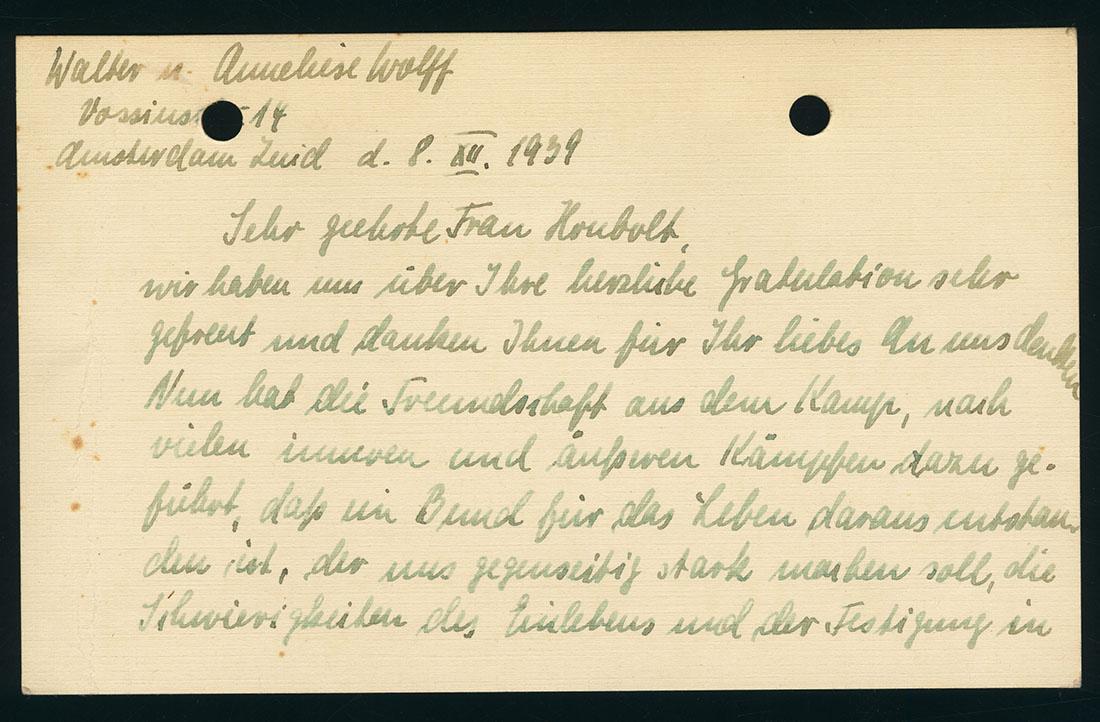 Walter u. Anneliese Wolff
Vossiusstr 14
Amsterdam Zuid d. 8. XII. 1939
Sehr geehrte Frau Houbolt,
wir haben uns über Ihre herzliche Gratulation sehr
gefreut und danken Ihnen für Ihr liebes An uns denken
Nun hat die Freundschaft aus dem Kamp, nach
vielen inneren und äußeren Kämpfen dazu ge-
führt, daß ein Bund für das Leben daraus entstan-
den ist, der uns gegenseitig stark machen soll, die
Schwierigkeiten des Einlebens und der Festigung in